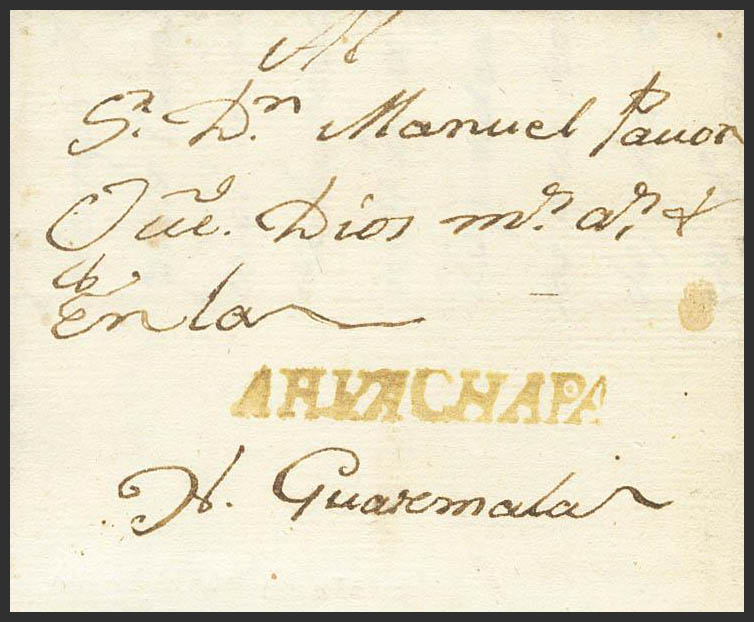 Al
Sr. Dn. Manuel Pavon
Gue. Dios ms. as. &
En la
AHUACHAPA
N. Guatemala